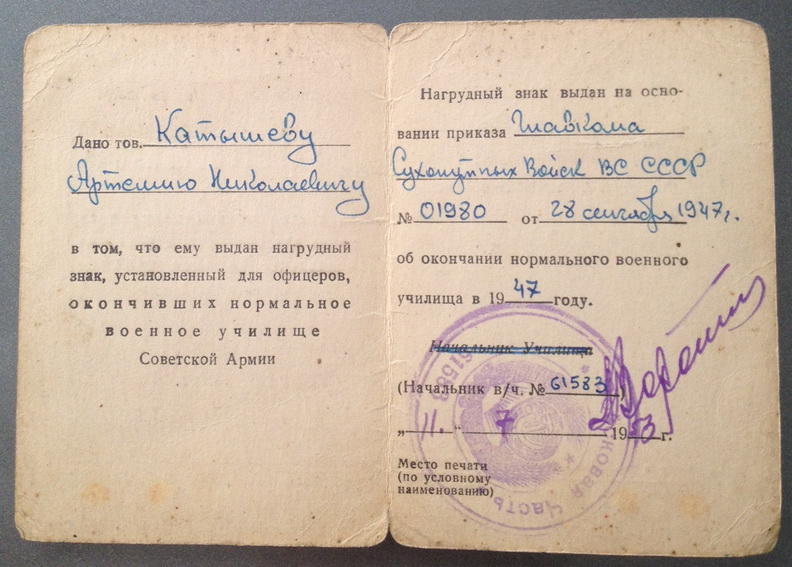 Дано тов. Катышеву
Артемию Николаевичу
в том, что ему выдан нагрудный
знак, установленный для офицеров,
окончивших нормальное
военное училище
Советской Армии
Нагрудный знак выдан на осно-
вании приказа Главкома
Сухопутных Войск ВС СССР
№ 01980 от 28 сентября 1947 г.
об окончании нормального военного
училища в 1947 году.
Начальник Училища
(Начальник в/ч. № 61583)
„11.“ 7 1953 г.
Место печати
(по условному
наименованию)
61583
Часть